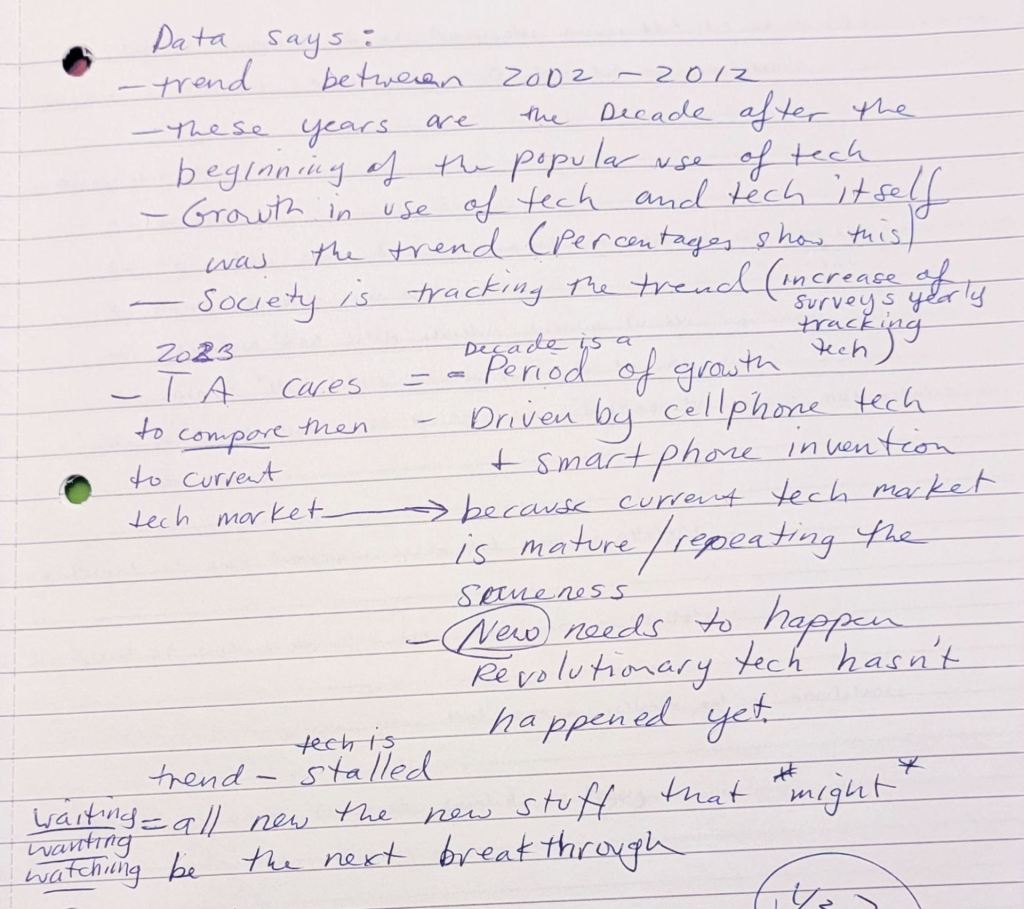 Data says:
- trend between 2002 - 2012
- these years are the Decade after the
beginning of the popular use of tech
- Growth in use of tech and tech itself
was the trend (percentages show this)
- Society is tracking the trend (increase of
surveys yearly
tracking
tech)
2023
- T A cares = 
to compare then
to current
tech market →
Decade is a
- Period of growth
- Driven by cellphone tech
+ smartphone invention
because current tech market
is mature / repeating the
sameness
- New needs to happen
Revolutionary tech hasn't
happened yet.
tech is
trend - stalled
waiting = all new the new stuff that *might*
wanting
watching be the next breakthrough